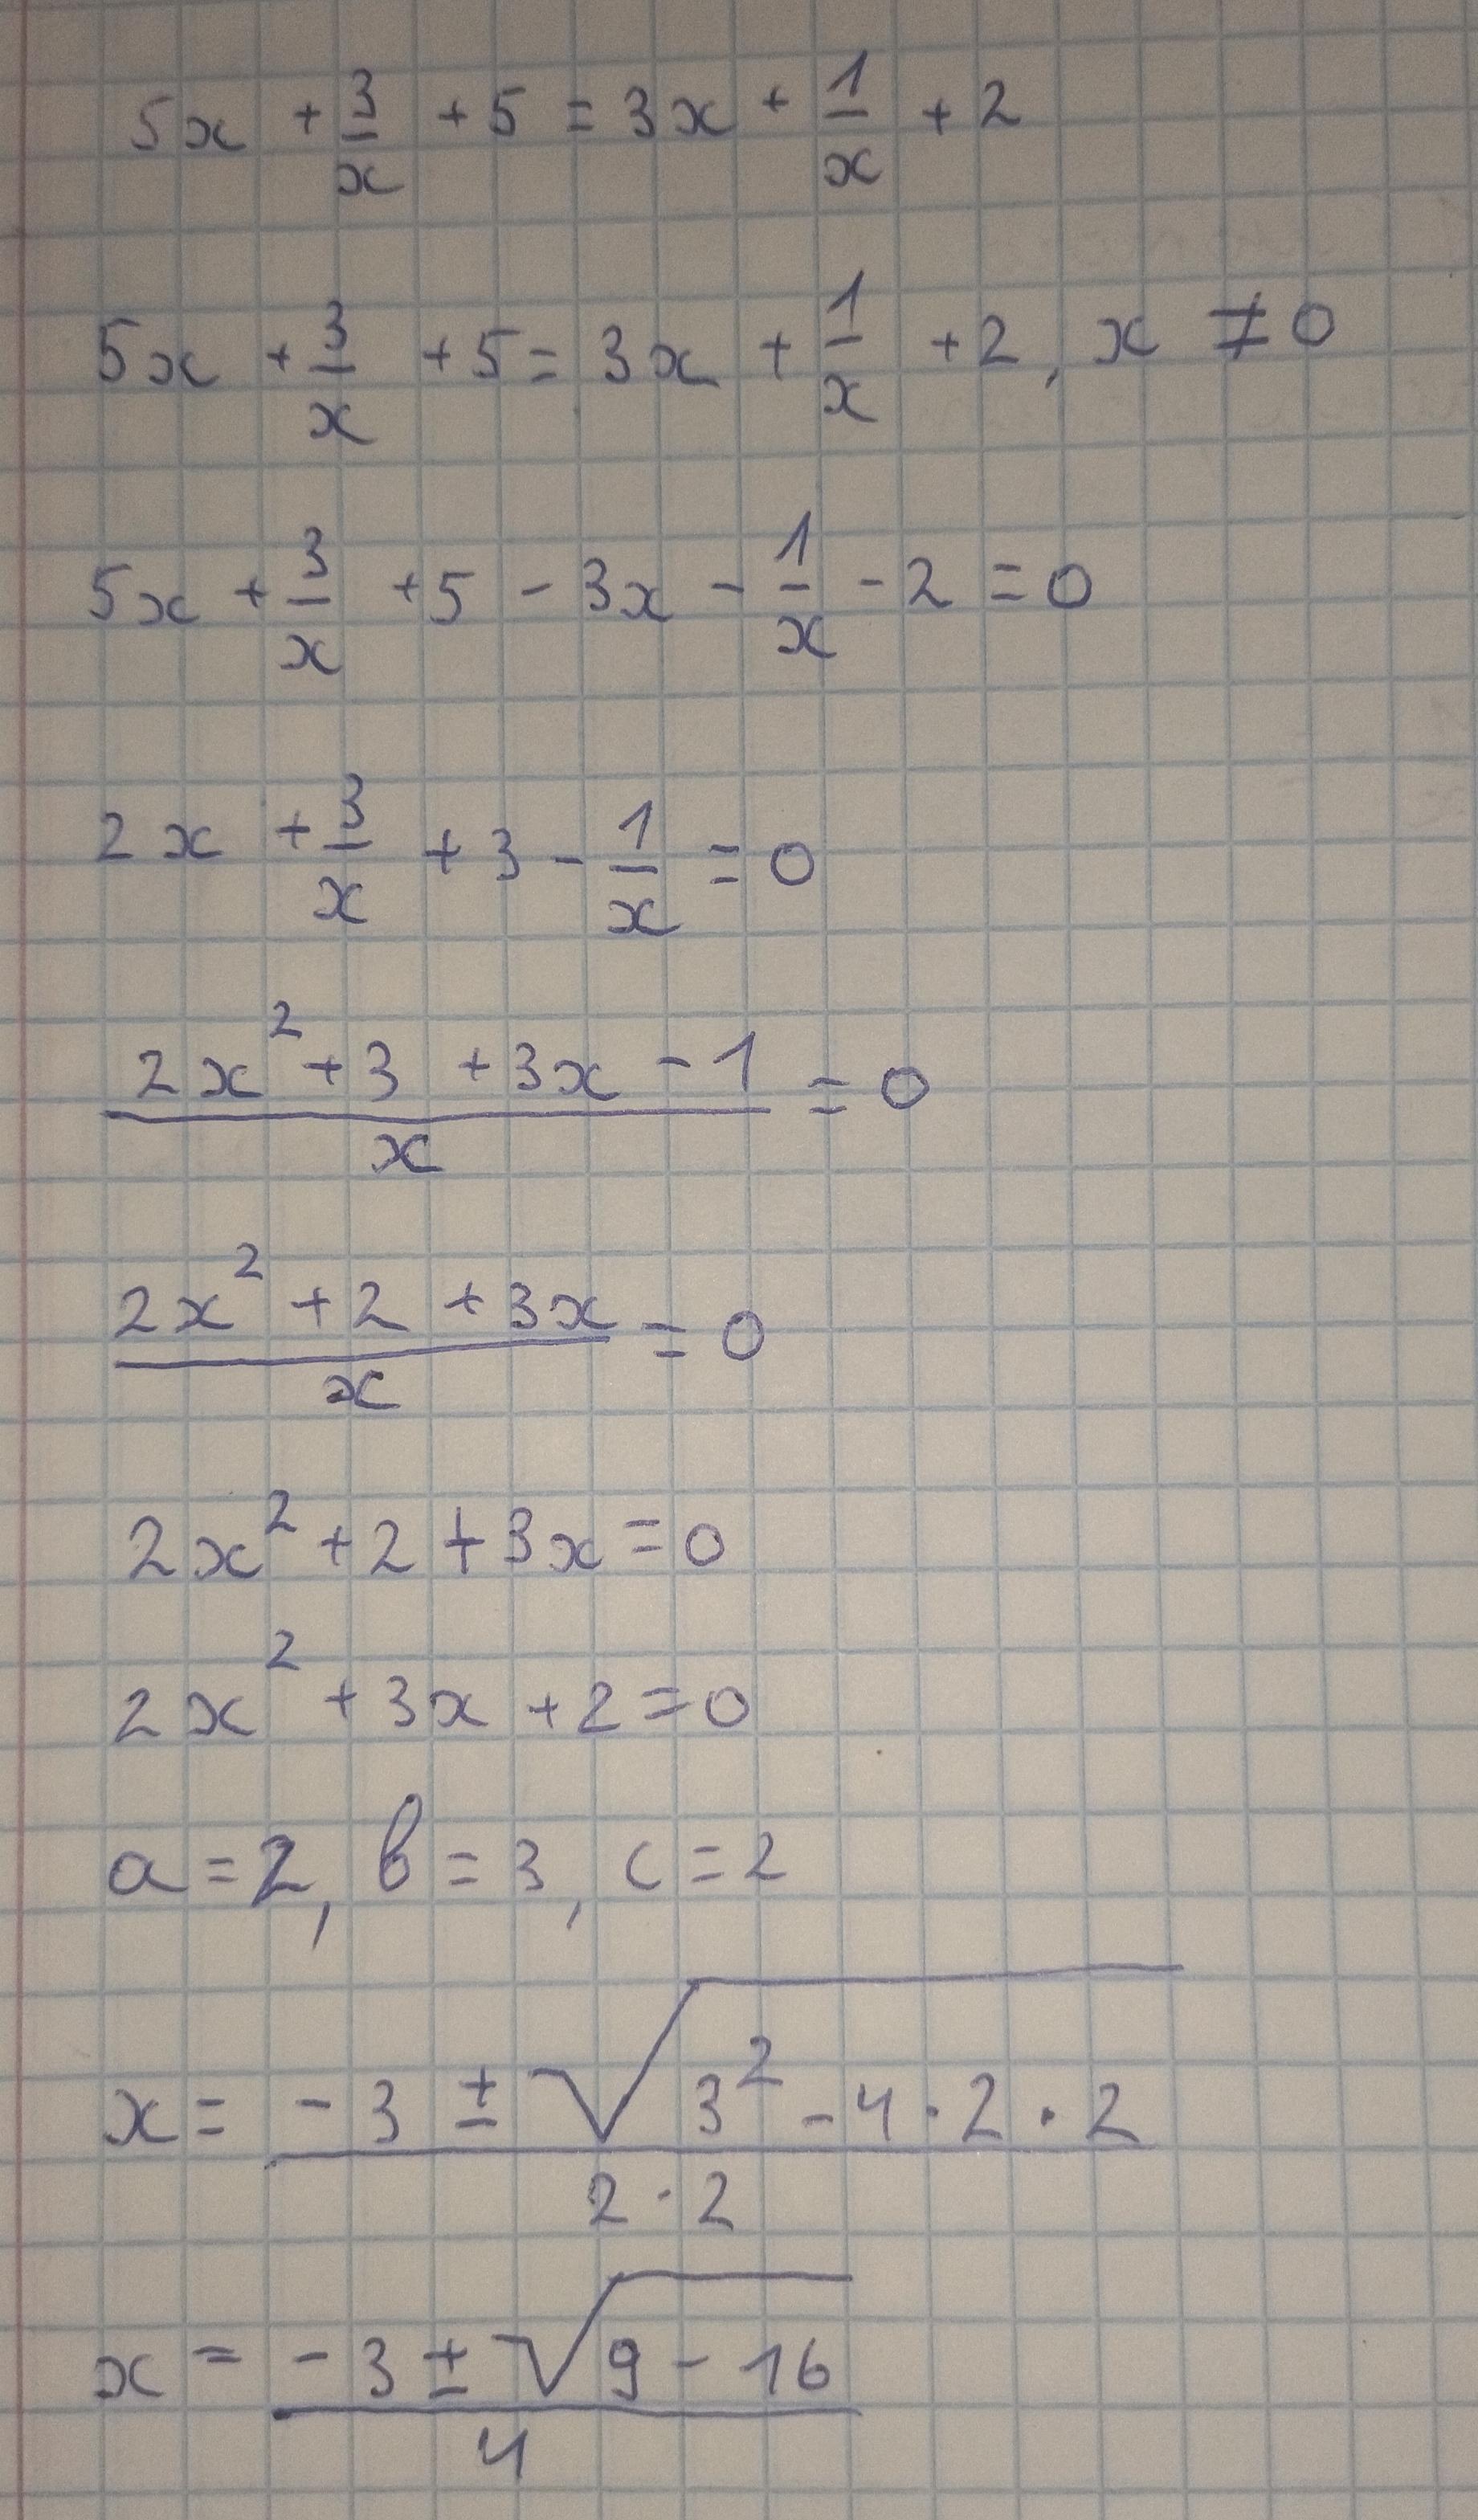 5x + 3/x + 5 = 3x + 1/x + 2
5x + 3/x + 5 = 3x + 1/x + 2, x ≠ 0
5x + 3/x + 5 - 3x - 1/x - 2 = 0
2x + 3/x + 3 - 1/x = 0
(2x² + 3 + 3x - 1)/x = 0
(2x² + 2 + 3x)/x = 0
2x² + 2 + 3x = 0
2x² + 3x + 2 = 0
a = 2, b = 3, c = 2
x = (-3 ± √(3² - 4 · 2 · 2))/(2 · 2)
x = (-3 ± √(9 - 16))/4